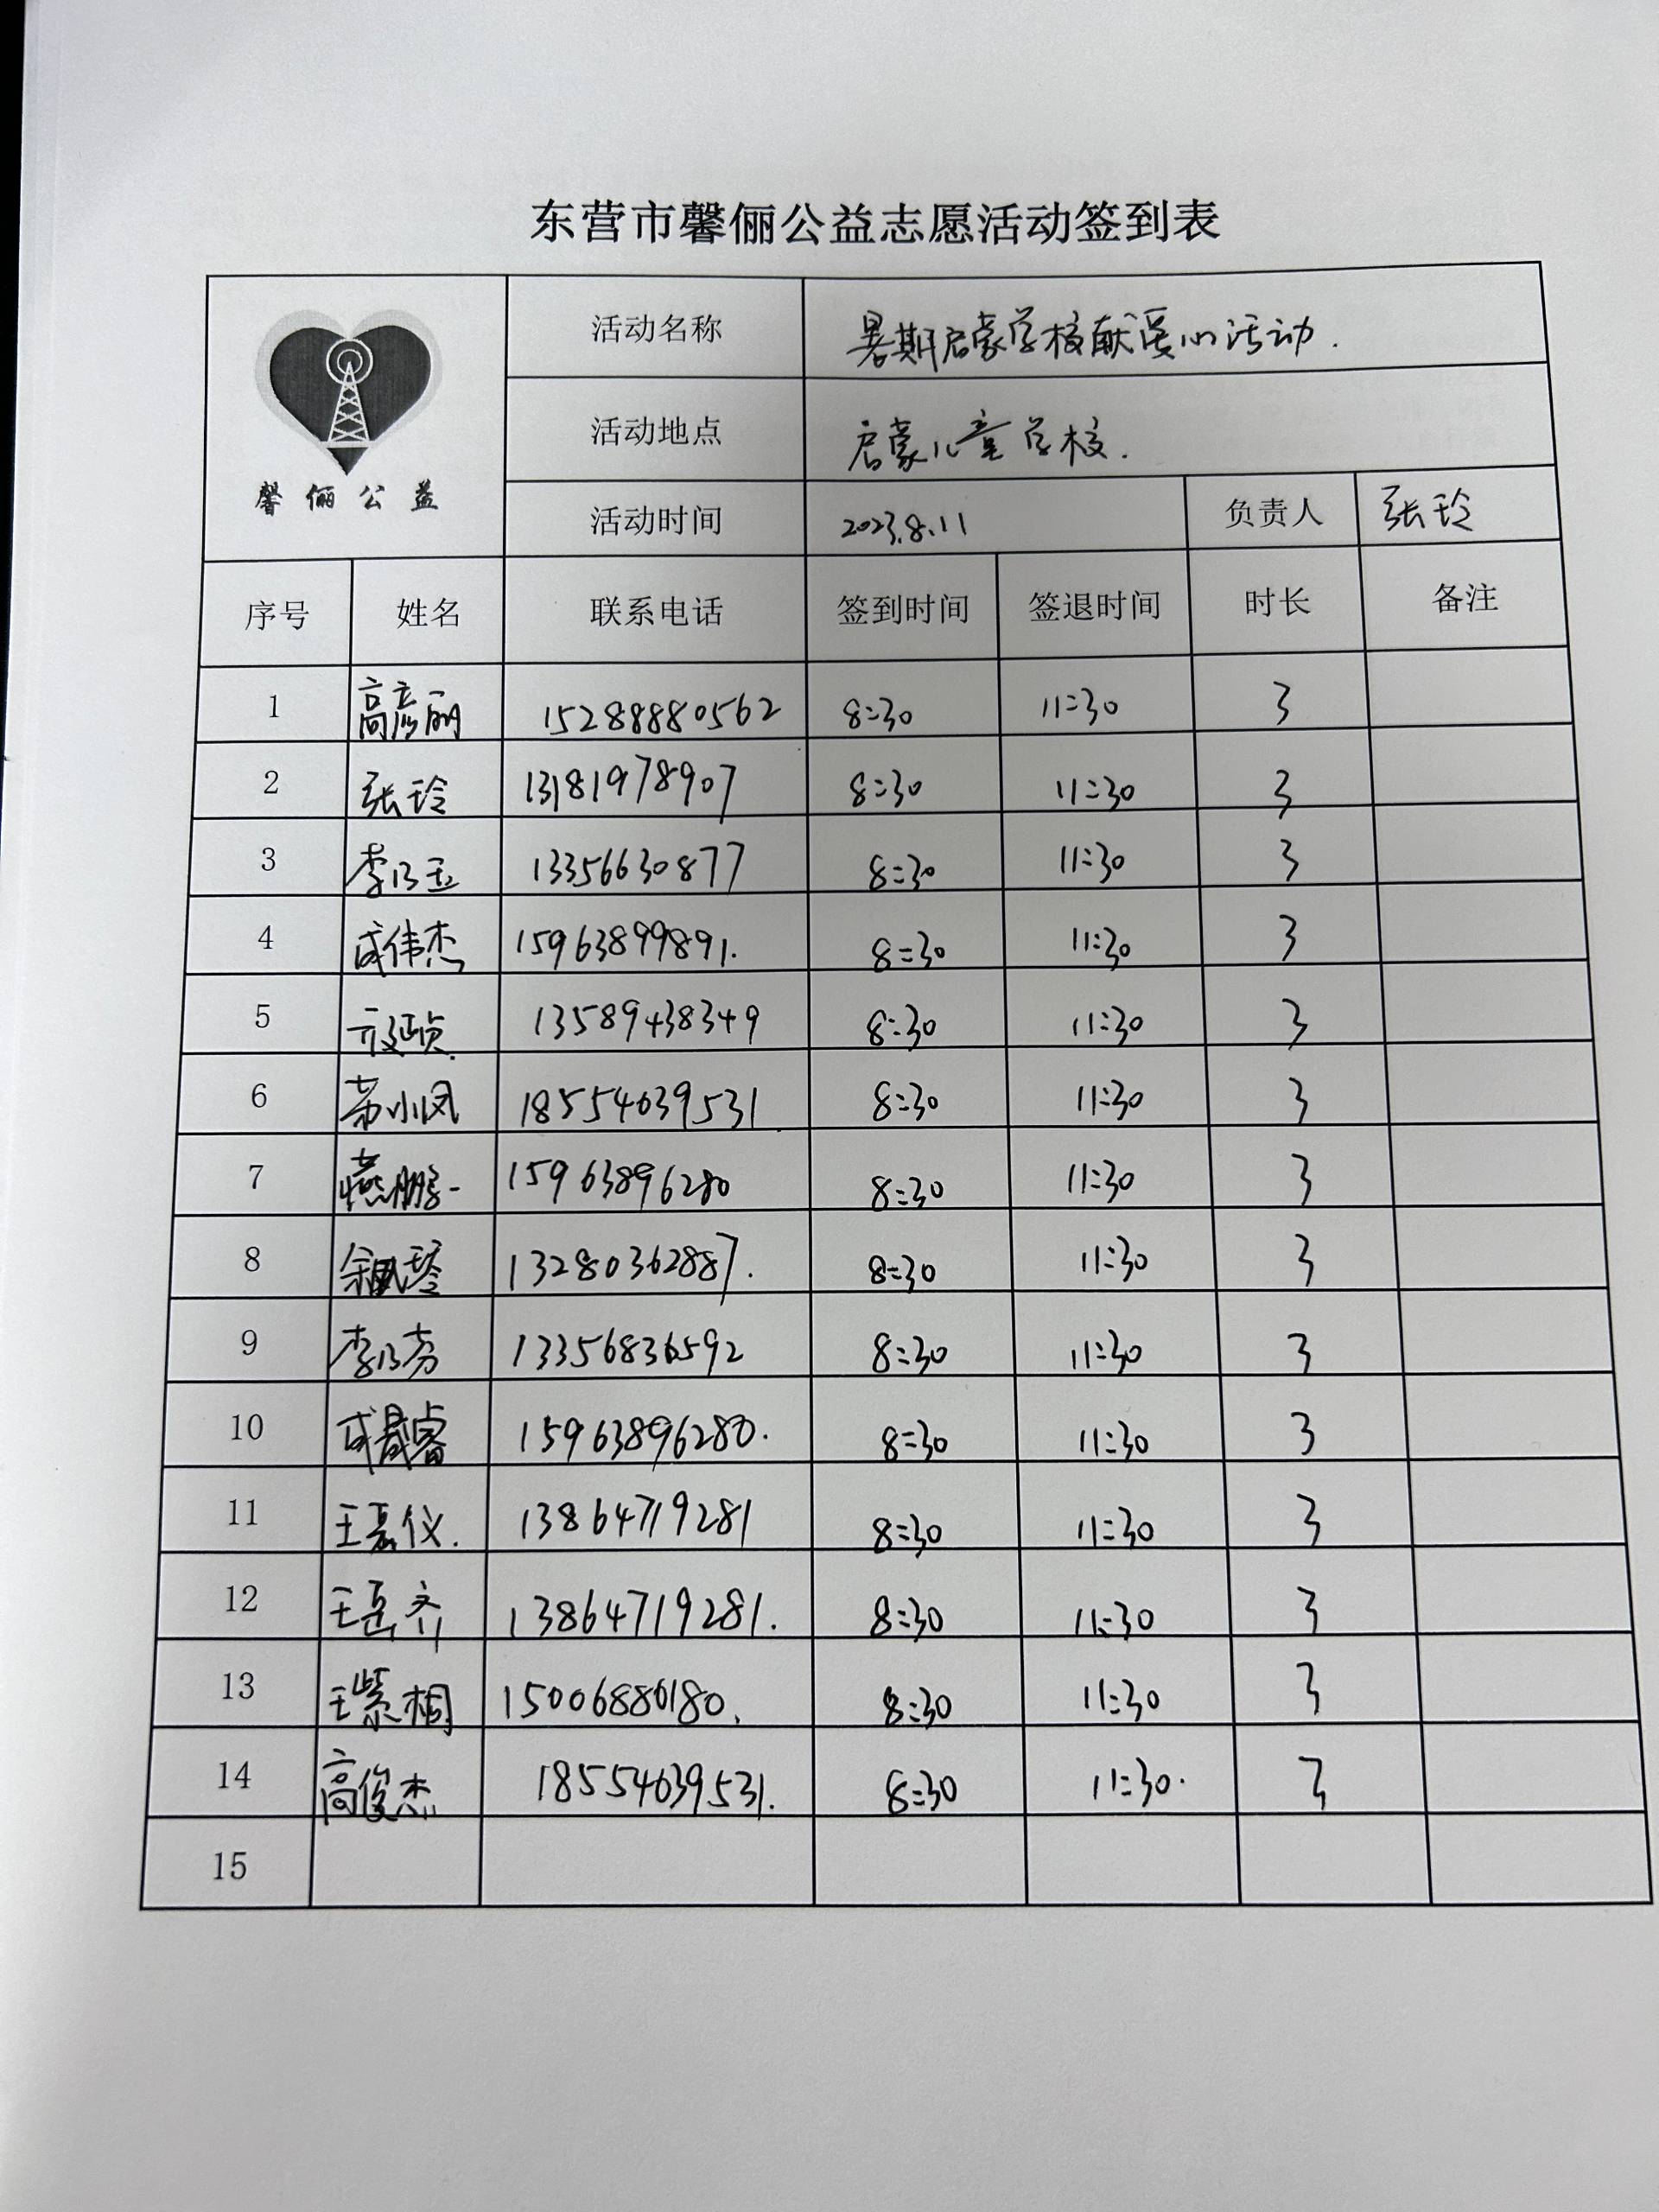 东营市馨俪公益志愿活动签到表
馨俪公益
活动名称 暑期启蒙学校献爱心活动.
活动地点 启蒙儿童学校.
活动时间 2023.8.11 负责人 张玲
序号 姓名 联系电话 签到时间 签退时间 时长 备注
1 高彦丽 15288880562 8:30 11:30 3
2 张玲 13181978907 8:30 11:30 3
3 李乃玉 13356630877 8:30 11:30 3
4 成伟杰 15963899891. 8:30 11:30 3
5 13589438349 8:30 11:30 3
6 苏小凤 18554639531 8:30 11:30 3
7 燕鹏 15963896280 8:30 11:30 3
8 13280362887. 8:30 11:30 3
9 李乃芬 13356836592 8:30 11:30 3
10 成晨睿 15963896280. 8:30 11:30 3
11 王嘉仪. 13864719281 8:30 11:30 3
12 王岳齐 13864719281. 8:30 11:30 3
13 王紫桐 15006886180. 8:30 11:30 3
14 高俊杰 18554639531. 8:30 11:30. 3
15